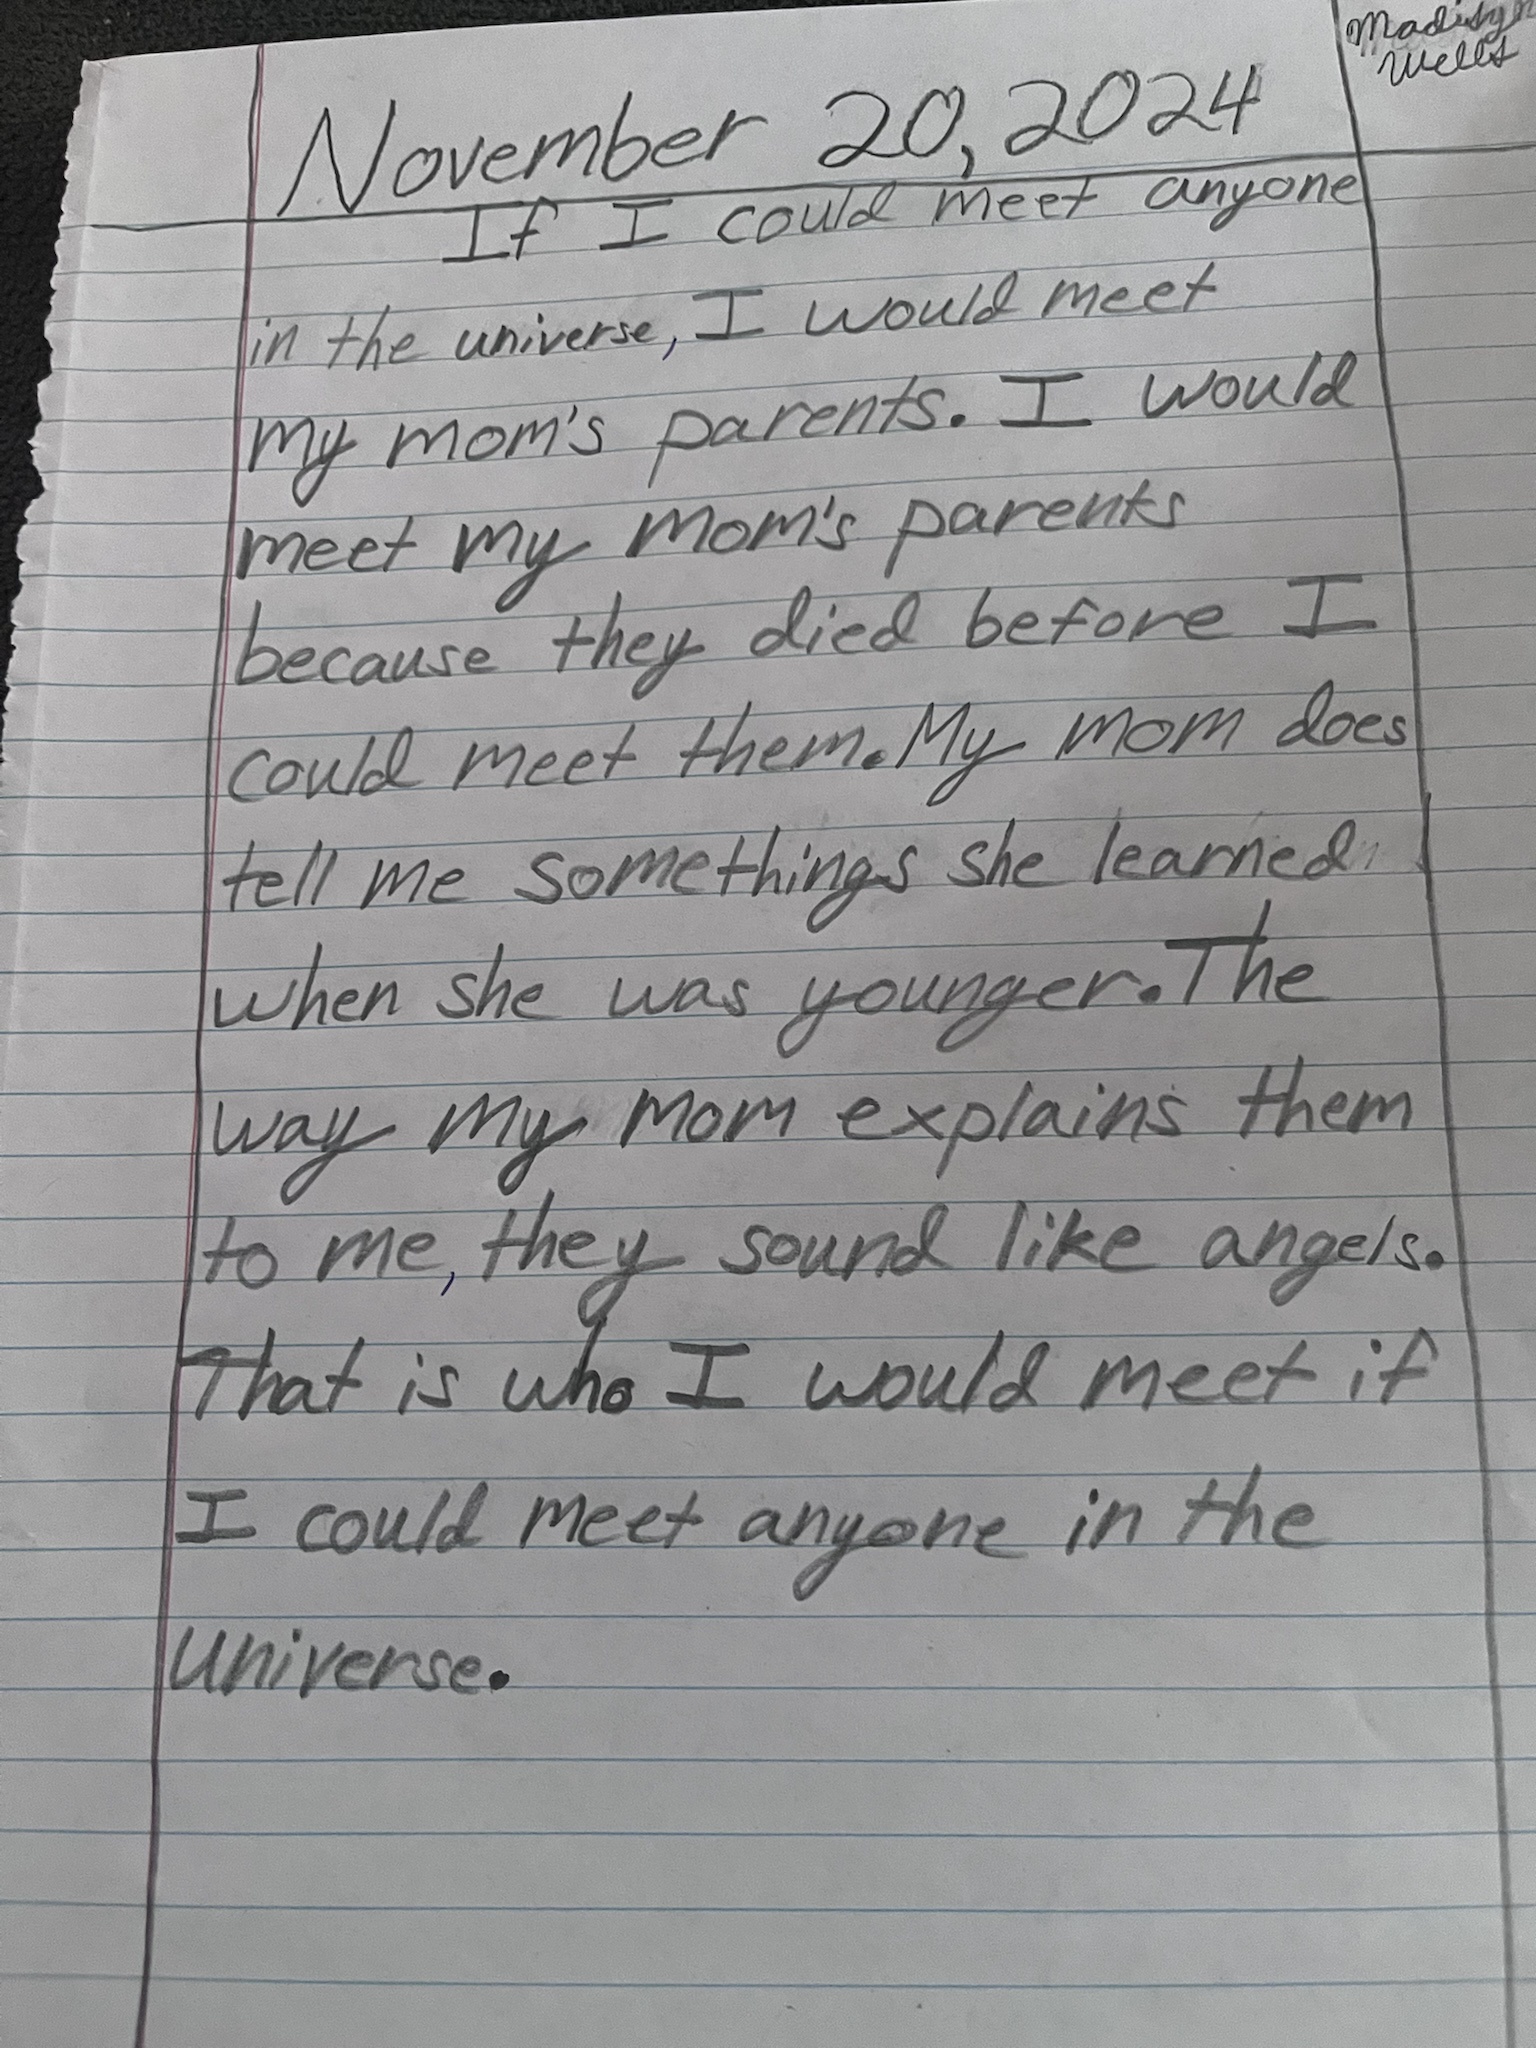 Madisyn
Wells
November 20, 2024
If I could meet anyone
in the universe, I would meet
my mom's parents. I would
meet my mom's parents
because they died before I
could meet them. My mom does
tell me somethings she learned
when she was younger. The
way my mom explains them
to me, they sound like angels.
That is who I would meet if
I could meet anyone in the
universe.